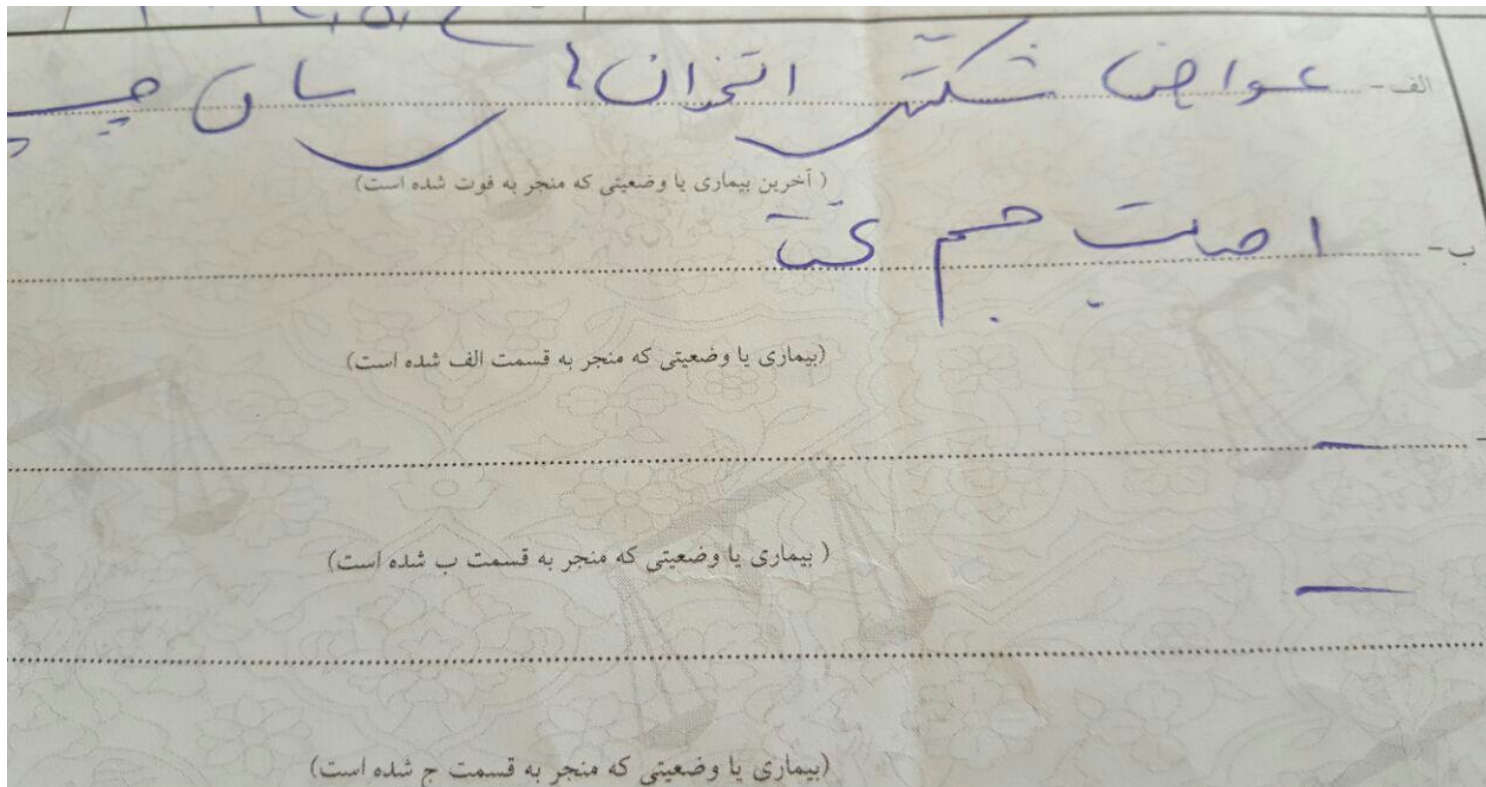 الف - عوارض شکستگی استخوان های ساق چپ
( آخرین بیماری یا وضعیتی که منجر به فوت شده است)
ب - اصابت جسم سخت
(بیماری یا وضعیتی که منجر به قسمت الف شده است)
-
( بیماری یا وضعیتی که منجر به قسمت ب شده است)
-
(بیماری یا وضعیتی که منجر به قسمت ج شده است)